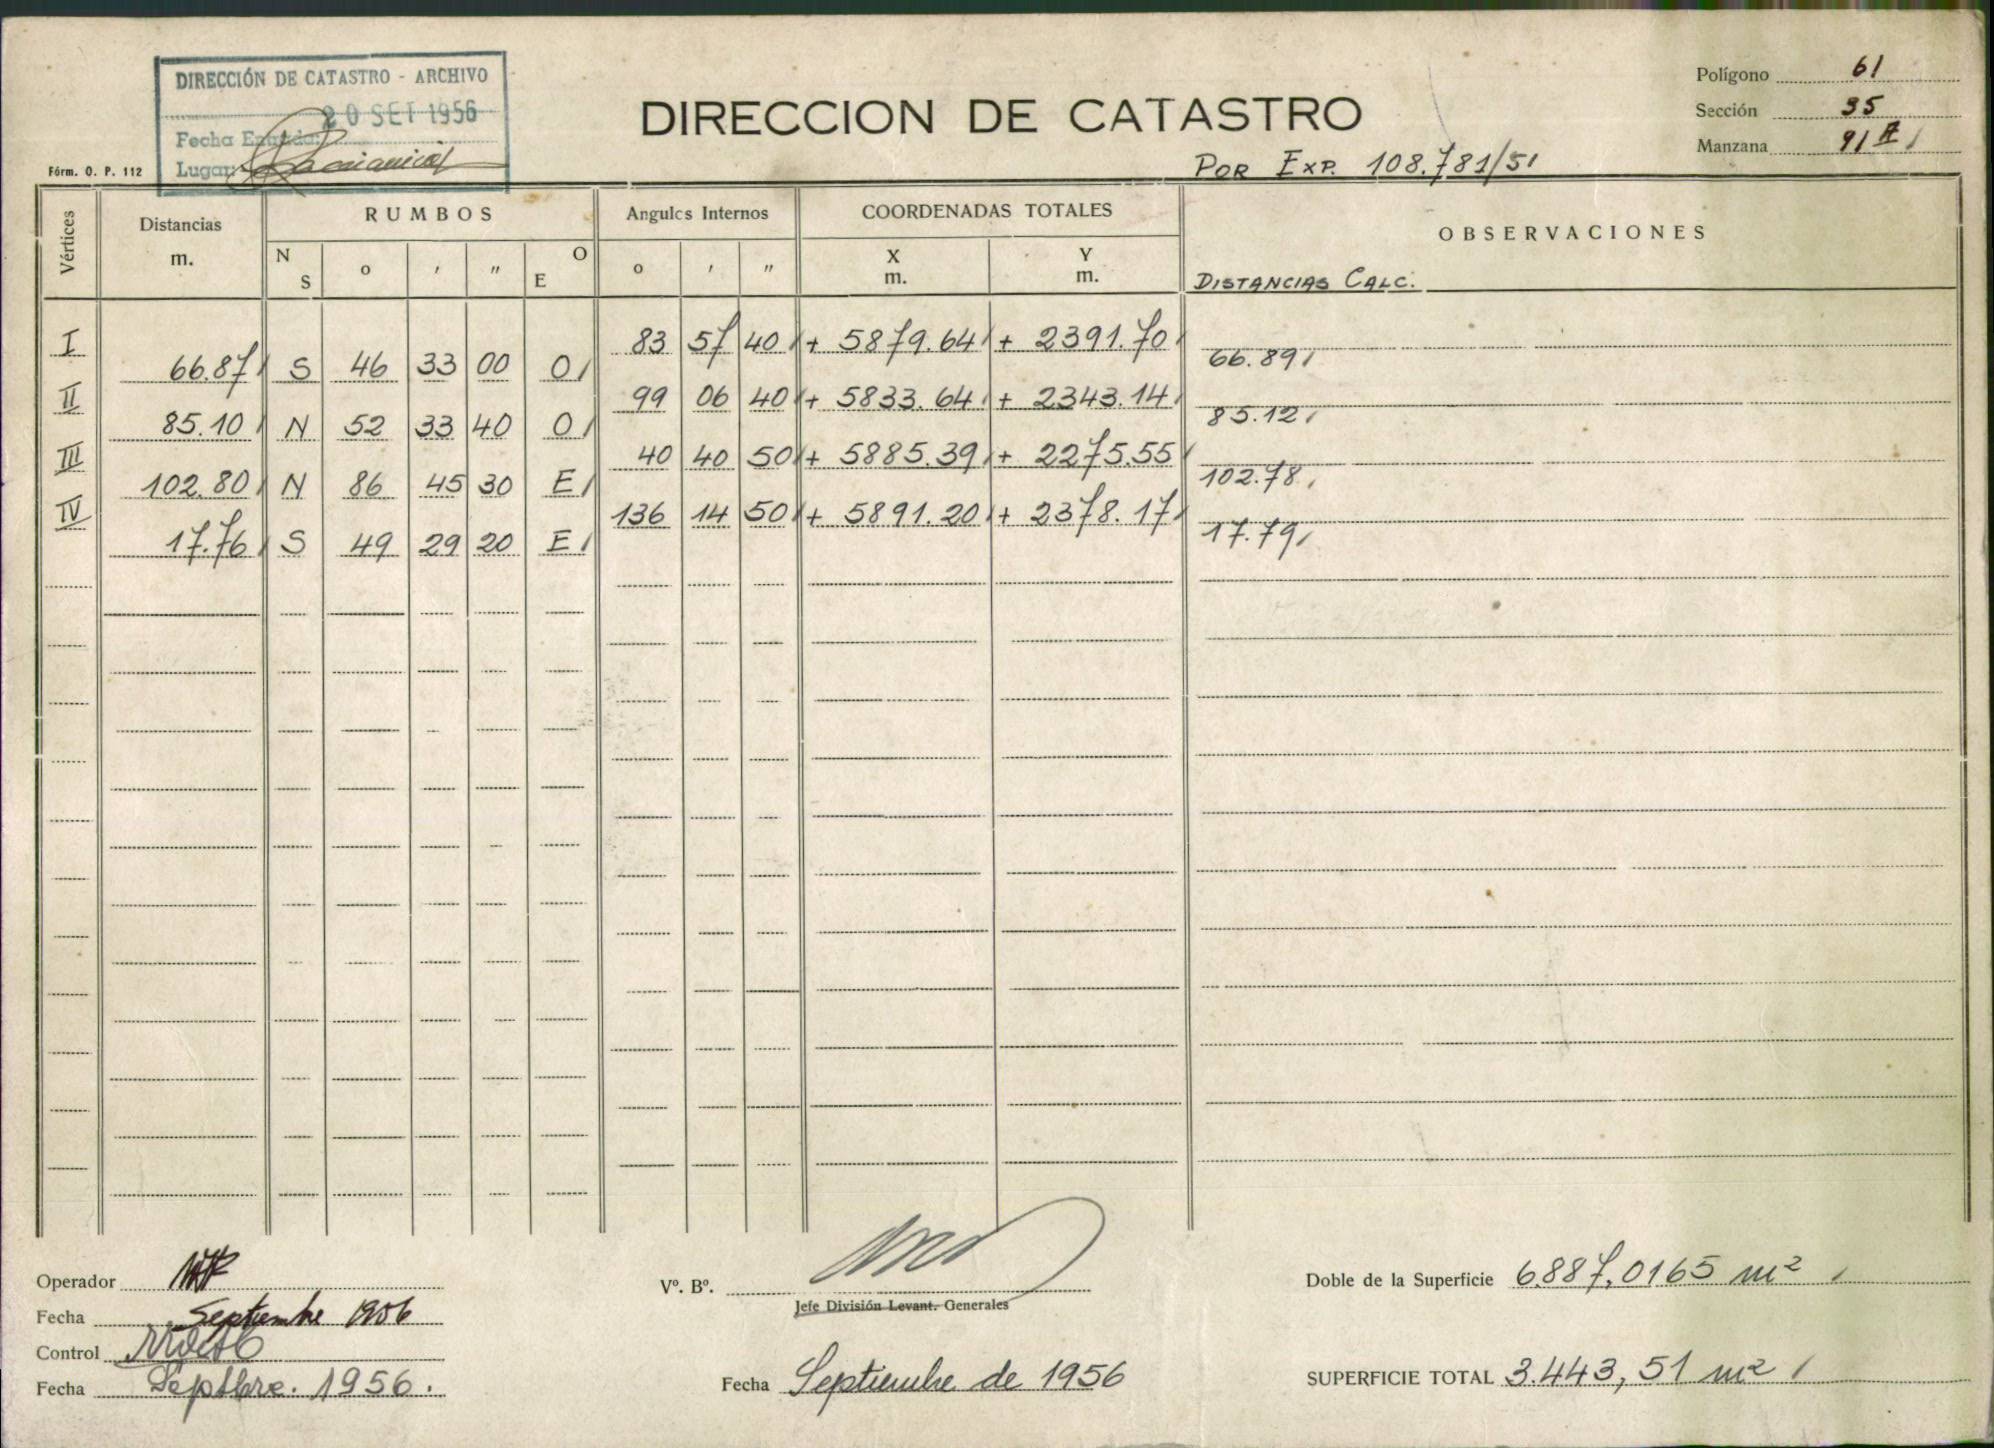 DIRECCIÓN DE CATASTRO - ARCHIVO
20 SET 1956
Fecha Entrada:
Lugar:
Fórm. O. P. 112
DIRECCION DE CATASTRO
POR EXP. 108.781/51
Polígono 61
Sección 35
Manzana 91
Vértices Distancias m. RUMBOS Angulos Internos COORDENADAS TOTALES OBSERVACIONES
N S o ' " O E o ' " X m. Y m.
DISTANCIAS CALC.
I 83 57 40 + 5879.64 + 2391.70
66.87 S 46 33 00 O 66.89
II 99 06 40 + 5833.64 + 2343.14
85.10 N 52 33 40 O 85.12
III 40 40 50 + 5885.39 + 2275.55
102.80 N 86 45 30 E 102.78
IV 136 14 50 + 5891.20 + 2378.17
17.76 S 49 29 20 E 17.79
Operador
Fecha Septiembre 1956
Control
Fecha Septbre. 1956.
Vº. Bº.
Jefe División Levant. Generales
Fecha Septiembre de 1956
Doble de la Superficie 6.887,0165 m²
SUPERFICIE TOTAL 3.443,51 m²